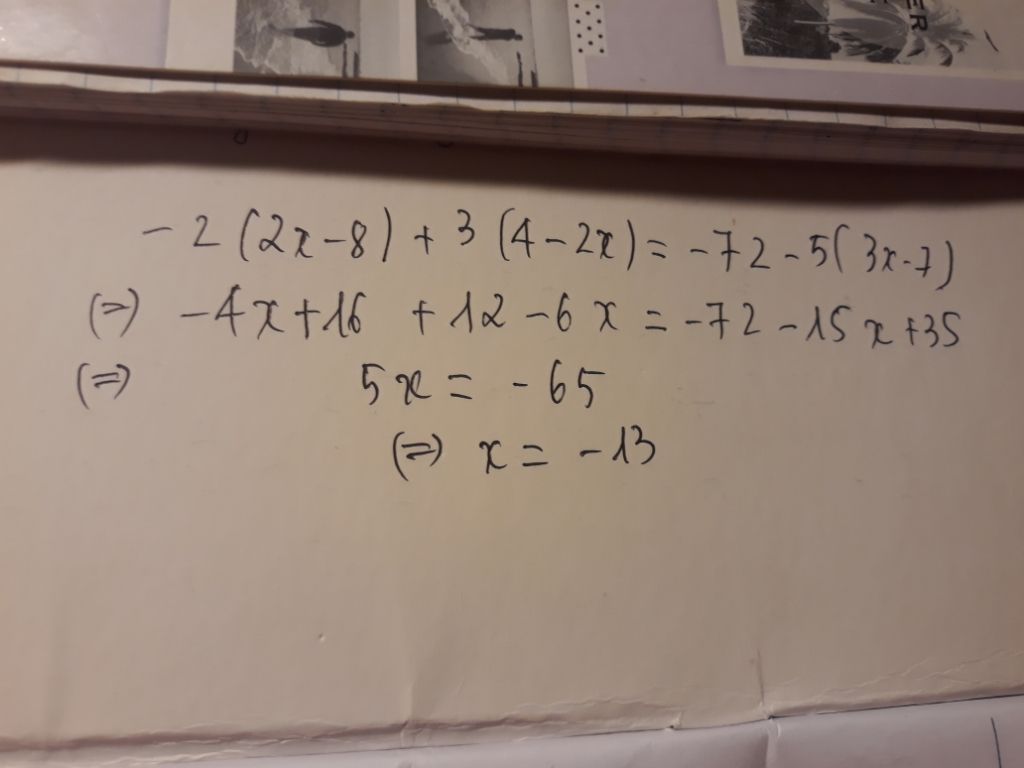 ER
-2(2x-8)+3(4-2x)=-72-5(3x-7)
(=) -4x+16 +12-6x=-72-15x+35
(=) 5x=-65
(=) x=-13